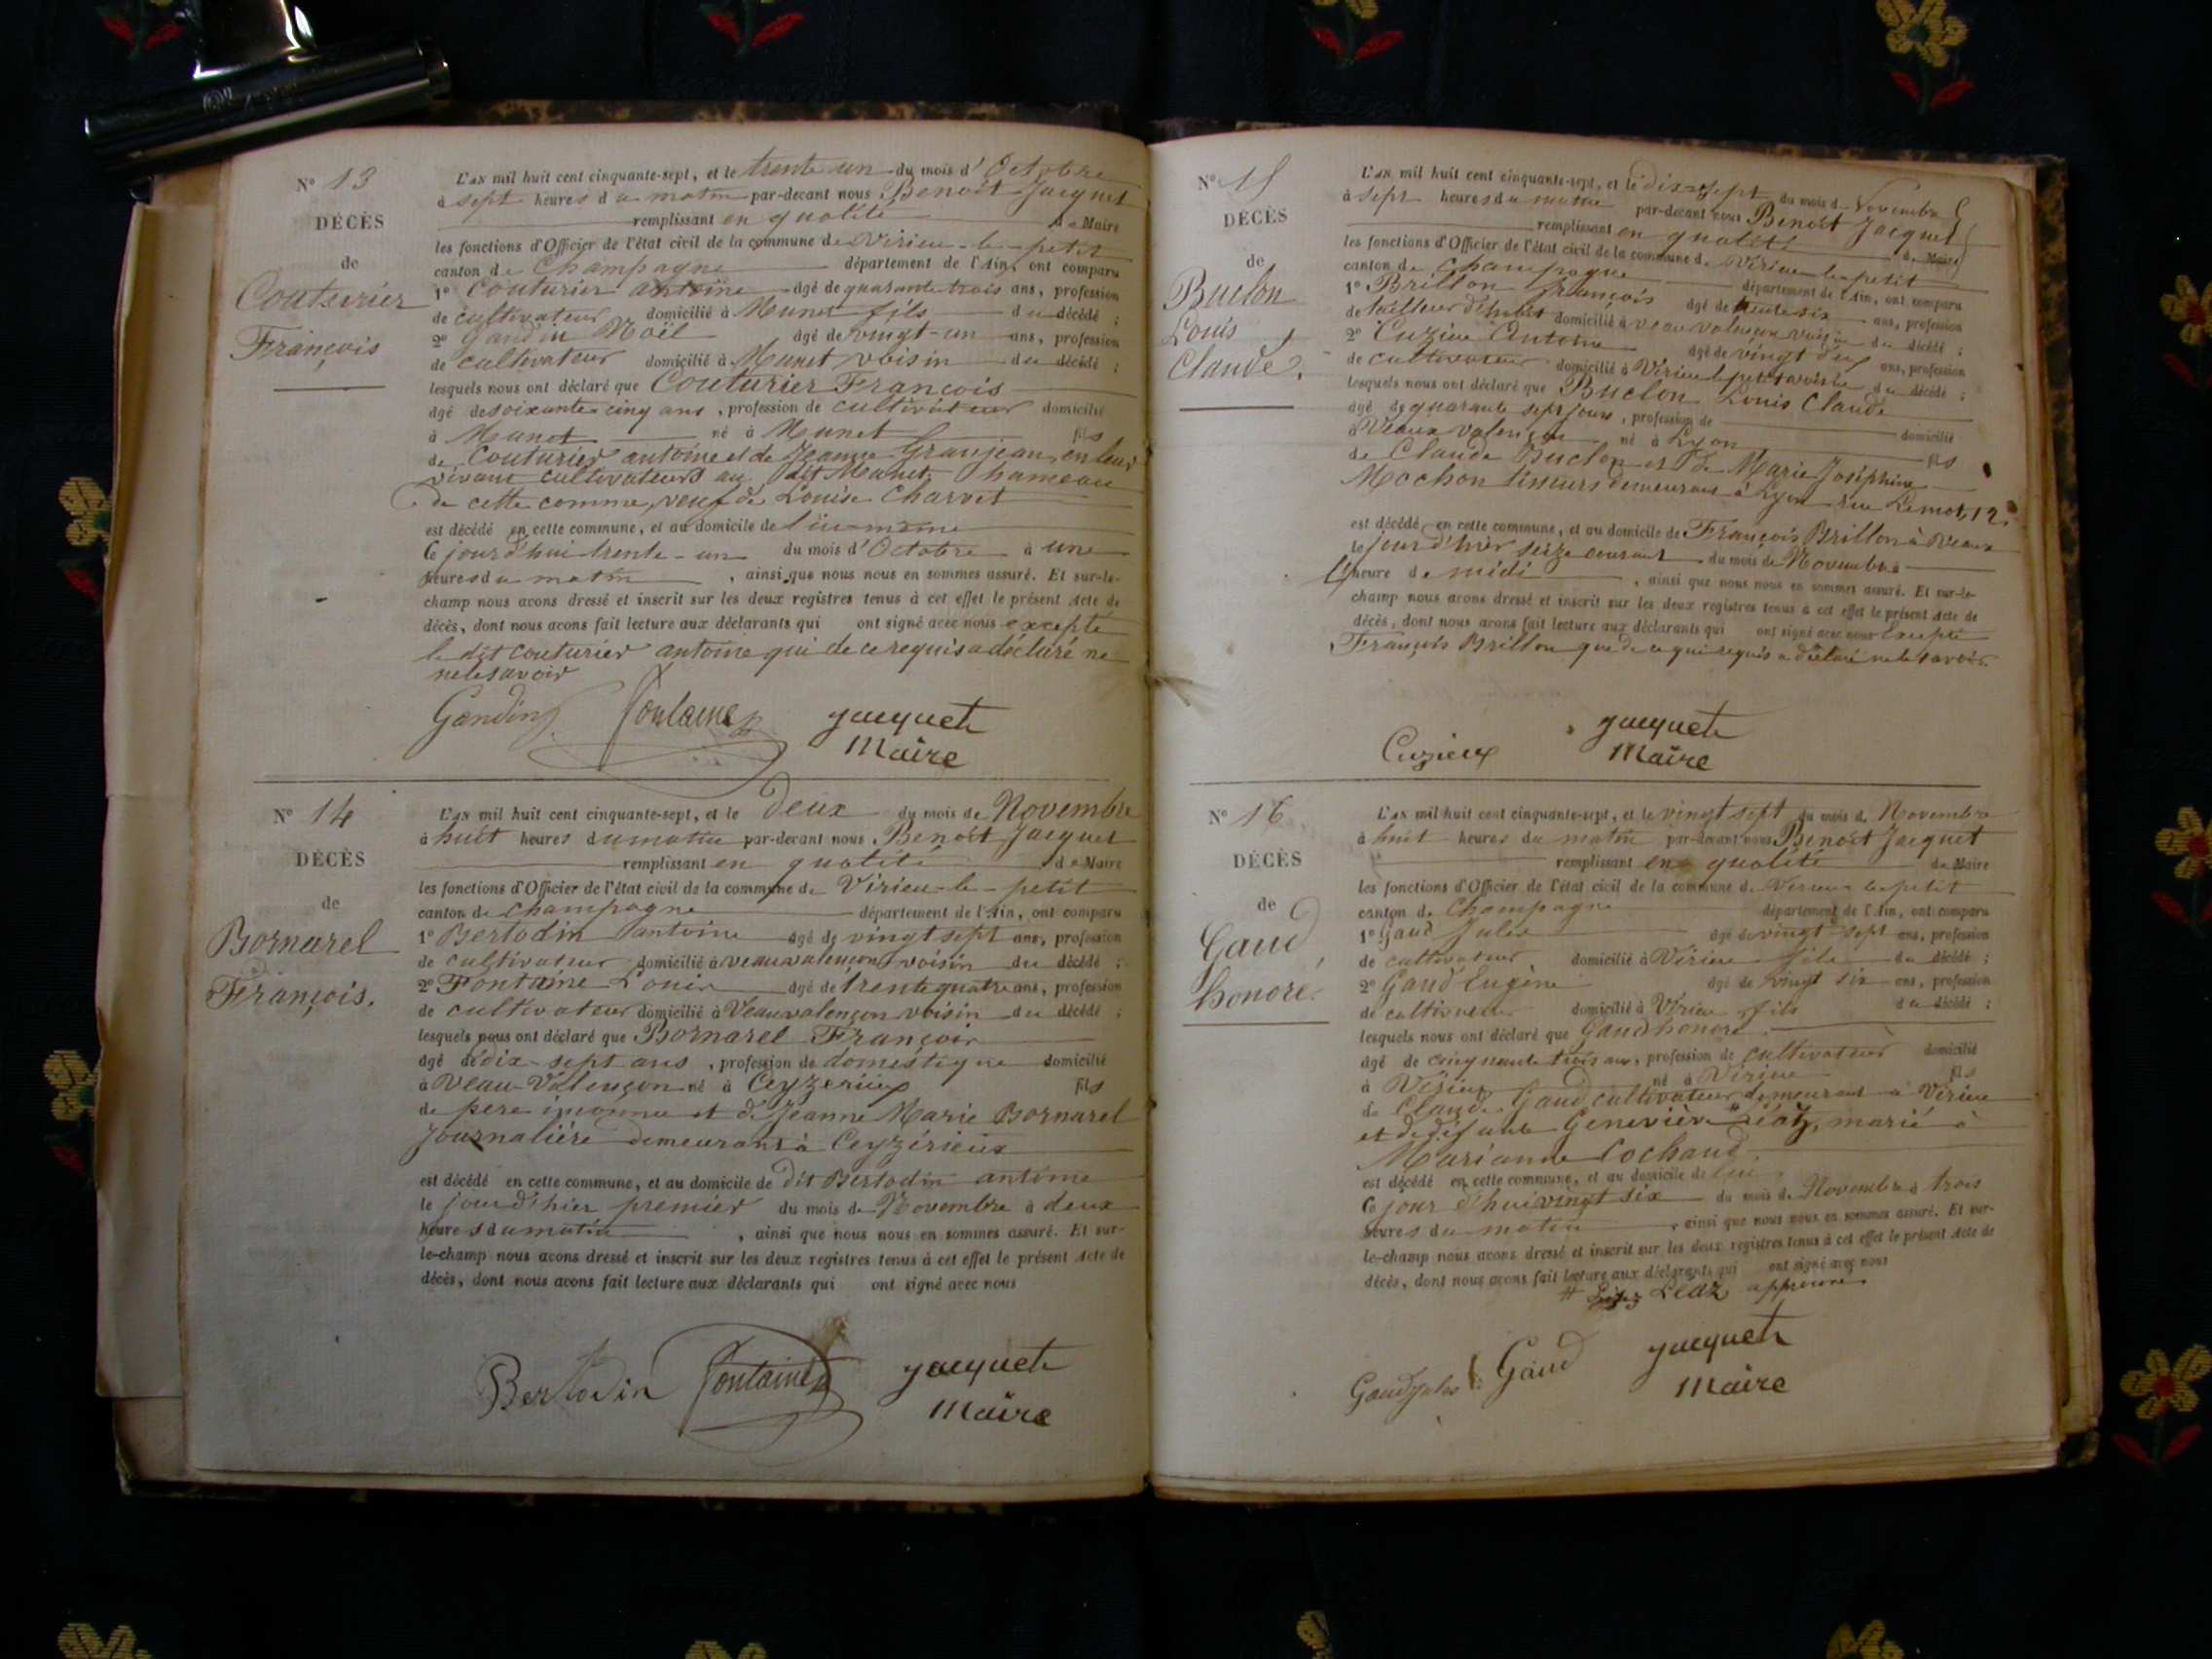 N° 13
DÉCÈS
de
Couturier
François
L'AN mil huit cent cinquante-sept, et le trente un du mois d'Octobre
à sept heures du matin par-devant nous Benoît Jacquet
remplissant en qualité de Maire
les fonctions d'Officier de l'état civil de la commune de Virieu-le-petit
canton de Champagne département de l'Ain, ont comparu
1° Couturier antoine âgé de quarante trois ans, profession
de cultivateur domicilié à Munet fils du décédé ;
2° Gandin Noël âgé de vingt-un ans, profession
de cultivateur domicilié à Munet voisin du décédé ;
lesquels nous ont déclaré que Couturier François
âgé de soixante cinq ans, profession de cultivateur domicilié
à Munet né à Munet fils
de Couturier antoine et de Jeanne Granjean, en leur
vivant cultivateurs au dit Munet, hameau
de cette comme, veuf de Louise Charvet
est décédé en cette commune, et au domicile de lui-même
Ce jourd'hui trente-un du mois d'Octobre à une
heures du matin, ainsi que nous nous en sommes assuré. Et sur-le-
champ nous avons dressé et inscrit sur les deux registres tenus à cet effet le présent Acte de
décès, dont nous avons fait lecture aux déclarants qui ont signé avec nous excepté
le dit couturier antoine qui de ce requis a déclaré ne
ne le savoir
Gandin Fontaine Jacquet
Maire
N° 14
DÉCÈS
de
Bornarel
François.
L'AN mil huit cent cinquante-sept, et le deux du mois de Novembre
à huit heures du matin par-devant nous Benoît Jacquet
remplissant en qualité de Maire
les fonctions d'Officier de l'état civil de la commune de Virieu-le-petit
canton de Champagne département de l'Ain, ont comparu
1° Bertodin antoine âgé de vingt sept ans, profession
de cultivateur domicilié à veauvalençon voisin du décédé ;
2° Fontaine Louis âgé de trente quatre ans, profession
de cultivateur domicilié à Veauvalençon voisin du décédé ;
lesquels nous ont déclaré que Bornarel François
âgé de dix-sept ans, profession de doméstique domicilié
à Veau-Valençon né à Ceyzerieux fils
de pere inconnu et de Jeanne Marie Bornarel
Journalière demeurant à Ceyzérieux
est décédé en cette commune, et au domicile de dit Bertodin antoine
le jour d'hier premier du mois de Novembre à deux
heures du matin, ainsi que nous nous en sommes assuré. Et sur-
le-champ nous avons dressé et inscrit sur les deux registres tenus à cet effet le présent Acte de
décès, dont nous avons fait lecture aux déclarants qui ont signé avec nous
Bertodin Fontaine Jacquet
Maire
N° 15
DÉCÈS
de
Buclon
Louis
Claude.
L'AN mil huit cent cinquante-sept, et le dix sept du mois de Novembre
à sept heures du matin par-devant nous Benoît Jacquet
remplissant en qualité de Maire
les fonctions d'Officier de l'état civil de la commune de Virieu-le-petit
canton de Champagne département de l'Ain, ont comparu
1° Brillon François âgé de trente six ans, profession
de tailleur d'habits domicilié à veauvalençon voisin du décédé ;
2° Cuzieux Antoine âgé de vingt deux ans, profession
de cultivateur domicilié à Virieu le petit voisin du décédé ;
lesquels nous ont déclaré que Buclon Louis Claude
âgé de quarante sept jours, profession de domicilié
à Veaux valençon né à Lyon fils
de Claude Buclon et de Marie Joséphine
Mochon tisseurs demeurant à Lyon rue Lemot, 12.
est décédé en cette commune, et au domicile de François Brillon à Veaux
le jour d'hier seize courant du mois de Novembre
heure de midi, ainsi que nous nous en sommes assuré. Et sur-le-
champ nous avons dressé et inscrit sur les deux registres tenus à cet effet le présent Acte de
décès, dont nous avons fait lecture aux déclarants qui ont signé avec nous Excepté
François Brillon que de ce qui requis a déclaré ne le savoir.
Cuzieux Jacquet
Maire
N° 16
DÉCÈS
de
Gaud
honoré.
L'AN mil huit cent cinquante-sept, et le vingt sept du mois de Novembre
à huit heures du matin par-devant nous Benoît Jacquet
remplissant en qualité de Maire
les fonctions d'Officier de l'état civil de la commune de Virieu le petit
canton de Champagne département de l'Ain, ont comparu
1° Gaud Jules âgé de vingt sept ans, profession
de cultivateur domicilié à Virieu fils du décédé ;
2° Gaud Eugène âgé de vingt six ans, profession
de cultivateur domicilié à Virieu fils du décédé ;
lesquels nous ont déclaré que Gaud honoré
âgé de cinquante trois ans, profession de cultivateur domicilié
à Virieu né à Virieu fils
de Claude Gaud cultivateur demeurant à Virieu
et de défunte Geneviève léaz, marié à
Marianne Cochaud.
est décédé en cette commune, et au domicile de lui
Ce jour d'hui vingt six du mois de Novembre à trois
heures du matin, ainsi que nous nous en sommes assuré. Et sur-
le-champ nous avons dressé et inscrit sur les deux registres tenus à cet effet le présent Acte de
décès, dont nous avons fait lecture aux déclarants qui ont signé avec nous
Léaz approuvé
Gaud jules Gaud Jacquet
Maire